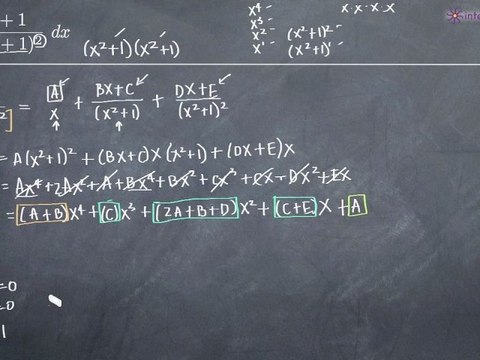 +1
+1)②) dx
(x²+1)(x²+1)
x⁴ -
x³ -
x² - (x²+1)² -
x¹ - (x²+1)¹ -
x·x·x·x
²] = A/x + BX+C/(x²+1) + DX+E/(x²+1)²
= A(x²+1)² + (BX+C)X(x²+1) + (DX+E)X
= Ax⁴ + 2Ax² + A + Bx⁴ + Bx² + Cx³ + Cx + Dx² + Ex
= (A+B)x⁴ + (C)x³ + (2A+B+D)x² + (C+E)x + A
=0
=0
1